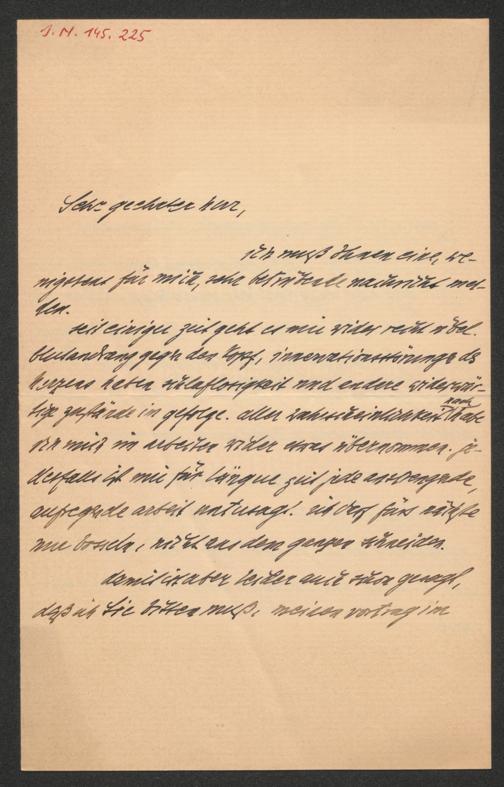 J.N. 145.225
Sehr geehrter herr,
ich muß Ihnen eine, we-
nigstens für mich, sehr betrübende nachricht mel-
den.
seit einiger zeit geht es mir wider recht übel.
blutandrang gegen den kopf, innervationsstörung des
herzens neben schlaflosigkeit und andere widerwär-
tige zustände im gefolge. aller wahrscheinlichkeit nach habe
ich mich im arbeiten wider etwas übernommen. je-
desfalls ist mir für längere zeit jede anstrengende,
aufregende arbeit untersagt. ich darf fürs nächste
nur bosseln, nicht aus dem ganzen schneiden.
damit ist aber leider auch schon gesagt,
daß ich Sie bitten muß, meinen vortrag im